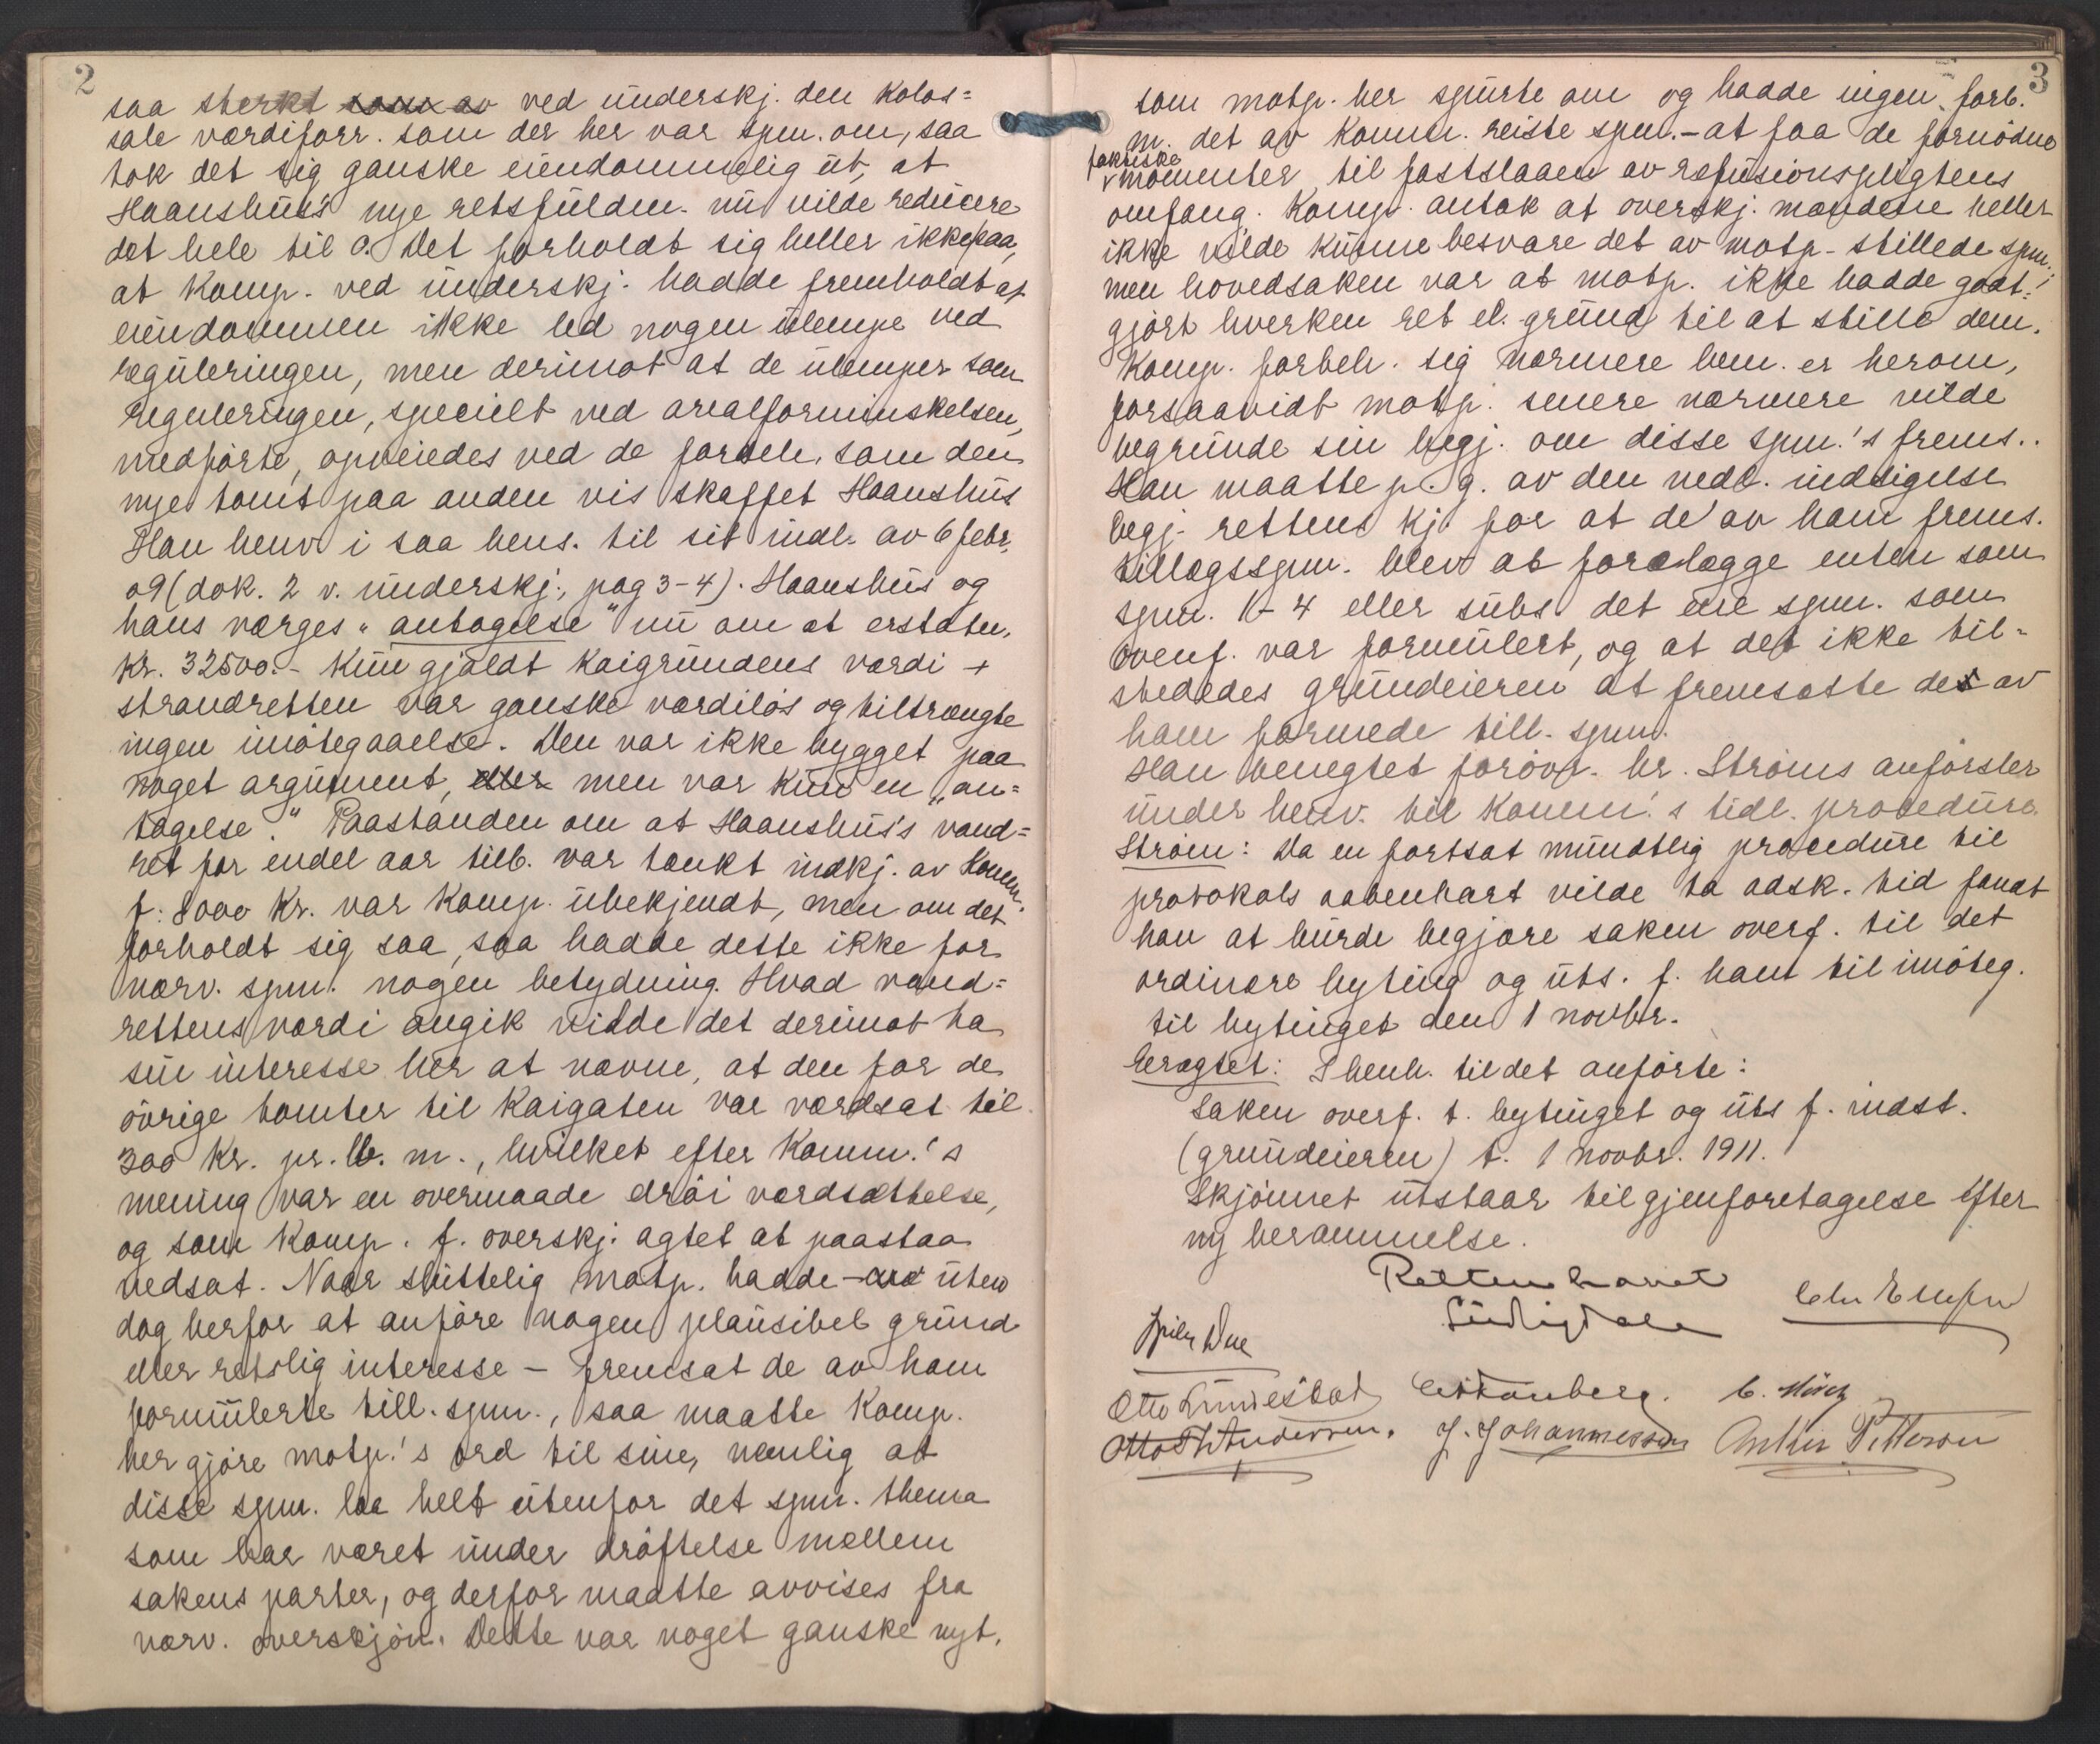 2
saa sterkt som av ved underskj. den kolos=
sale værdiforr. som der her var spm. om, saa
tok det sig ganske eiendommelig ut, at
Haanshus's nye retsfuldm. nu vilde reducere
det hele til 0. Det forholdt sig heller ikke saa,
at Komp. ved underskj. hadde fremholdt at
eiendommen ikke led nogen ulempe ved
reguleringen, men derimot at de ulemper som
reguleringen, specielt ved arealforminskelsen,
medførte, opveiedes ved de fordele, som den
nye tomt paa anden vis skaffet Haanshus
Han henv. i saa hens. til sit indl. av 6 febr.
09 (dok. 2 v. underskj., pag 3-4). Haanshus og
hans værges "antagelse" nu om at erstatn.
Kr. 32500.- kun gjaldt kaigrundens værdi +
strandretten var ganske værdiløs og tiltrængte
ingen imøtegaaelse. Den var ikke bygget paa
noget argument, eller men var kun en "an=
tagelse." Paastanden om at Haanshus's vand=
ret for endel aar tilb. var tænkt indkj. av Komm.
f. 8000 Kr. var Komp. ubekjendt, men om det
forholdt sig saa, saa hadde dette ikke for
nærv. spm. nogen betydning. Hvad vand=
rettens værdi angik vilde det derimot ha
sin interesse her at nævne, at den for de
øvrige tomter til Kaigaten var værdsat til
300 Kr. pr. lb. m., hvilket efter Komm.'s
mening var en overmaade drøi værdsættelse,
og som Komp. f. overskj. agtet at paastaa
nedsat. Naar sluttelig motp. hadde - uten
dog herfor at anføre nogen plausibel grund
eller retslig interesse - fremsat de av ham
formulerte till. spm., saa maatte Komp.
her gjøre motp.'s ord til sine, nemlig at
disse spm. laa helt utenfor det spm. thema
som har været under drøftelse mellem
sakens parter, og derfor maatte avvises fra
nærv. overskjøn. Dette var noget ganske nyt,
3
som motp. her spurte om og hadde ingen forb.
m. det av Komm. reiste spm. - at faa de fornødne
faktiske
momenter til fastslaaen av refusionspligtens
omfang. Komp. antok at overskj. mændene heller
ikke vilde kunne besvare det av motp. stillede spm.;
men hovedsaken var at motp. ikke hadde godt=
gjort hverken ret el. grund til at stille dem.
Komp. forbeh. sig nærmere bem. er herom,
forsaavidt motp. senere nærmere vilde
begrunde sin begj. om disse spm.'s frems..
Han maatte p. g. av den nedl. indsigelse
begj. rettens kj. for at de av ham frems.
tillægsspm. blev at forelægge enten som
spm. 1-4 eller subs. det ene spm. som
ovenf. var formulert, og at det ikke til=
stededes grundeieren at fremsætte de av
ham formede till. spm.
Han benegtet forøvr. hr. Strøms anførsler
under henv. til Komm.'s tidl. procedure.
Strøm: Da en fortsat mundtlig procedure til
protokols aabenbart vilde ta adsk. tid fandt
han at burde begjære saken overf. til det
ordinære byting og uts. f. ham til imøteg.
til bytinget den 1 novbr.
Eragtet: I henh. til det anførte:
Saken overf. t. bytinget og uts f. indst.
(grundeieren) t. 1 novbr. 1911.
Skjønnet utstaar til gjenforetagelse efter
ny berammelse.
Retten hævet
Otto Lundestad C. Münch
Otto Th Andersen. J. Johannessen Arthur Petterson